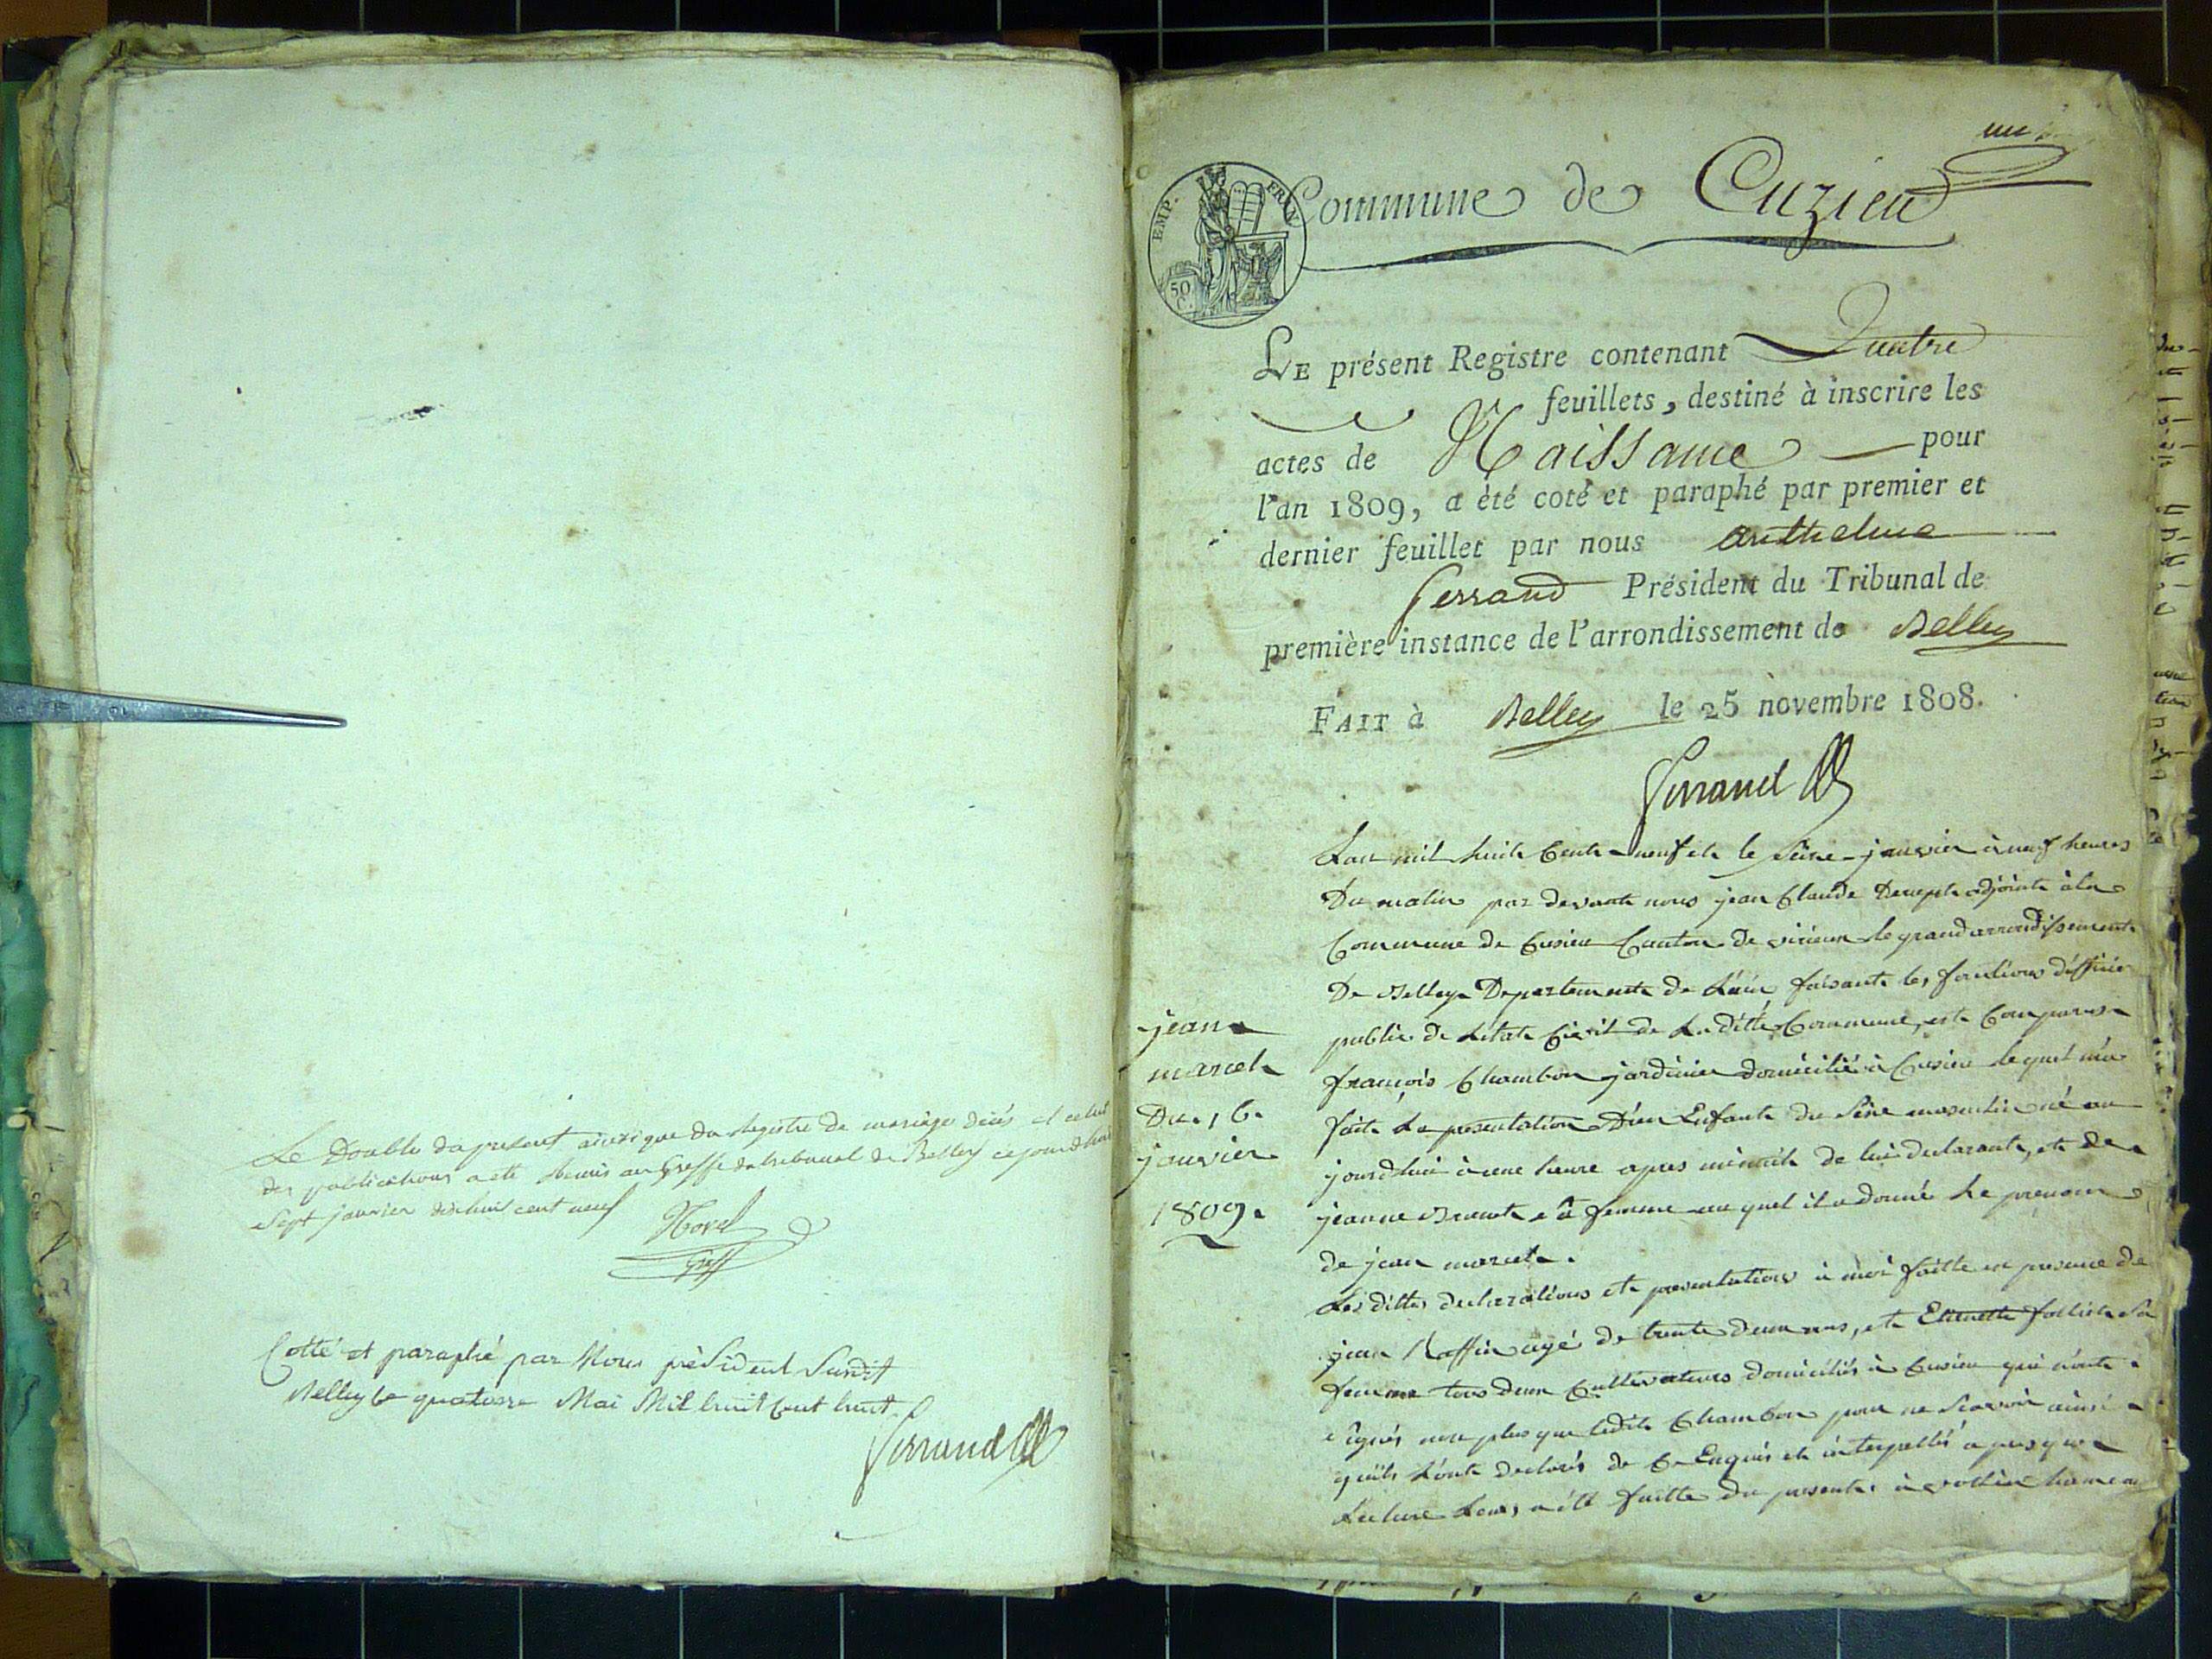 Le Double du present ainsi que du Registre de mariage décés et celui
des publications a eté Remis au Greffe du tribunal de Belley ce jourdhui
Sept janvier dixhuit cent neuf
Morel
Greff
Cotté et paraphé par Nous président Susdit
Belley le quatorze Mai Mil huit Cent huit
Ferrand
un
EMP. FRAN.
50 C.
Commune de Cuzieu
LE présent Registre contenant Quatre
feuillets, destiné à inscrire les
actes de Naissance pour
l'an 1809, a été coté et paraphé par premier et
dernier feuillet par nous Anthelme
Ferrand Président du Tribunal de
première instance de l'arrondissement de Belley
FAIT à Belley le 25 novembre 1808.
Ferrand
jean
marcel
Du 16
janvier
1809.
Lan mil huit Cent neuf et le Seize janvier à neuf heures
Du matin par devant nous jean Claude adjoint à la
Commune de Cusieu Canton de virieux le grand arrondissement
De Belley Departement de Lain faisant les fonctions dofficier
public de Létat Civil de Laditte Commune, est Comparu
françois Chambon jardinier domicilié à Cusieu lequel m'a
fait La presentation Dun Enfant du Sexe masculin né au
jourdhui à une heure apres minuit de lui declarant, et de
jeanne sa femme au quel il a donné Le prenom
de jean marcel.
Les dittes declarations et presentations à moi faitte en presence de
jean Raffin agé de trente deux ans, et Etiennette Sa
femme tous deux Cultivateurs domiciliés à Cusieu qui n'ont
signés non plus que ledit Chambon pour ne Scavoir ainsi
quils L'ont declarés de Ce Enquis et interpellés apres que
Lecture Leurs a été faitte du present à hameau